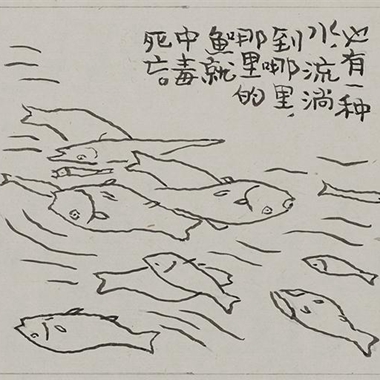 也有一种
水,流淌
到哪里,
哪里的
鱼就
中毒
死亡。